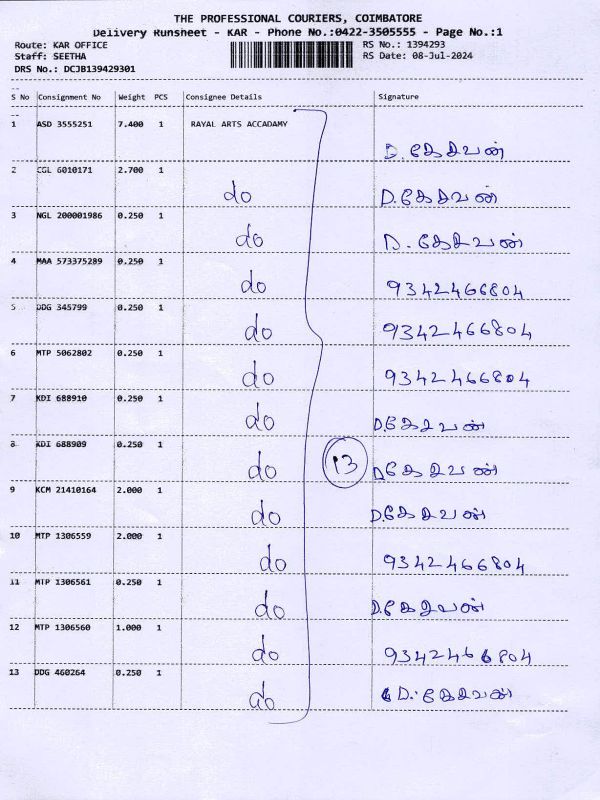 THE PROFESSIONAL COURIERS, COIMBATORE
Delivery Runsheet - KAR - Phone No.:0422-3505555 - Page No.:1
Route: KAR OFFICE RS No.: 1394293
Staff: SEETHA RS Date: 08-Jul-2024
DRS No.: DCJB139429301
S No Consignment No Weight PCS Consignee Details Signature
1 ASD 3555251 7.400 1 RAYAL ARTS ACCADAMY
D. கேசவன்
2 CGL 6010171 2.700 1
do D.கேசவன்
3 NGL 200001986 0.250 1
do D. கேசவன்
4 MAA 573375289 0.250 1
do 9342466804
5 DDG 345799 0.250 1
do 9342466804
6 MTP 5062802 0.250 1
do 9342466804
7 KDI 688910 0.250 1
do D.கேசவன்
8 KDI 688909 0.250 1
do 13 D கேசவன்
9 KCM 21410164 2.000 1
do D.கேசவன்
10 MTP 1306559 2.000 1
do 9342466804
11 MTP 1306561 0.250 1
do D.கேசவன்
12 MTP 1306560 1.000 1
do 9342466804
13 DDG 460264 0.250 1
do D. கேசவன்